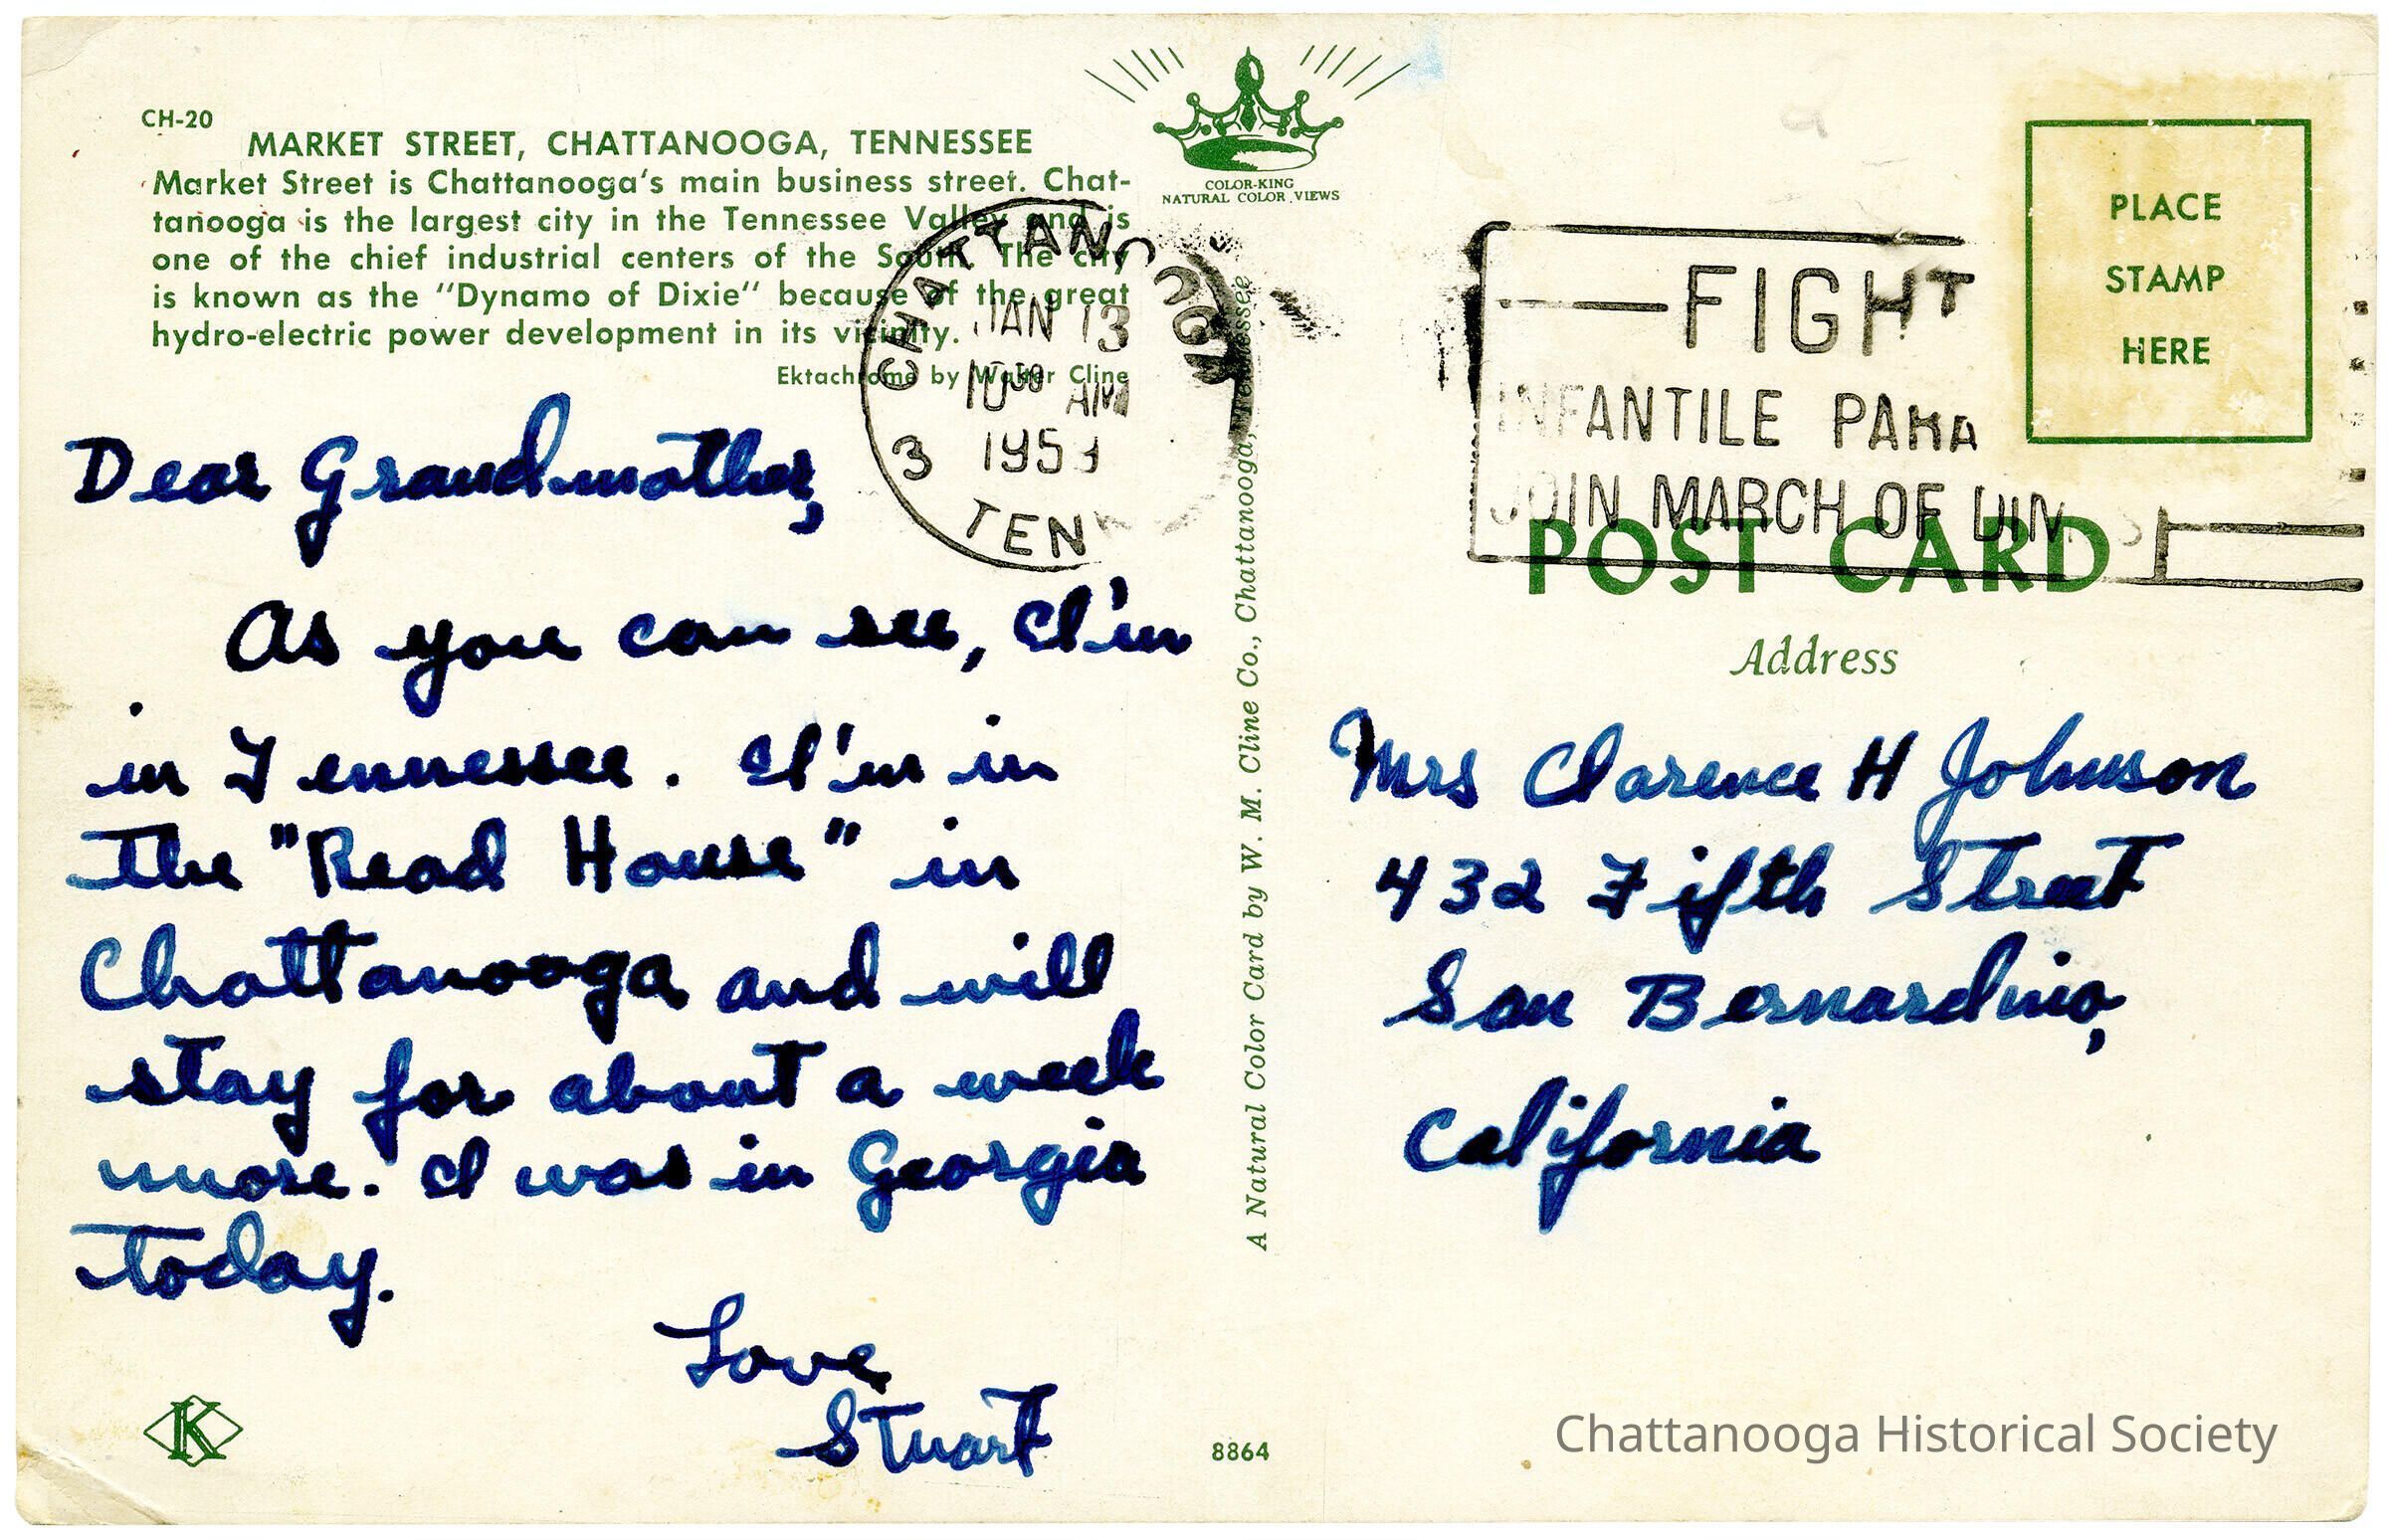 CH-20
MARKET STREET, CHATTANOOGA, TENNESSEE
Market Street is Chattanooga's main business street. Chat-
tanooga is the largest city in the Tennessee Valley and is
one of the chief industrial centers of the South. The city
is known as the "Dynamo of Dixie" because of the great
hydro-electric power development in its vicinity.
Ektachrome by Walter Cline
COLOR-KING
NATURAL COLOR VIEWS
CHATTANOOGA
JAN 13
10 30 AM
3
TENN
FIGHT
INFANTILE PARA
JOIN MARCH OF DIM
PLACE
STAMP
HERE
POST CARD
Address
Dear Grandmother,
As you can see, I'm
in Tennessee. I'm in
the "Read House" in
Chattanooga and will
stay for about a week
more. I was in Georgia
today.
Love
Stuart
K
A Natural Color Card by W. M. Cline Co., Chattanooga, Tennessee
8864
Mrs Clarence H Johnson
432 Fifth Street
San Bernardino,
California
Chattanooga Historical Society